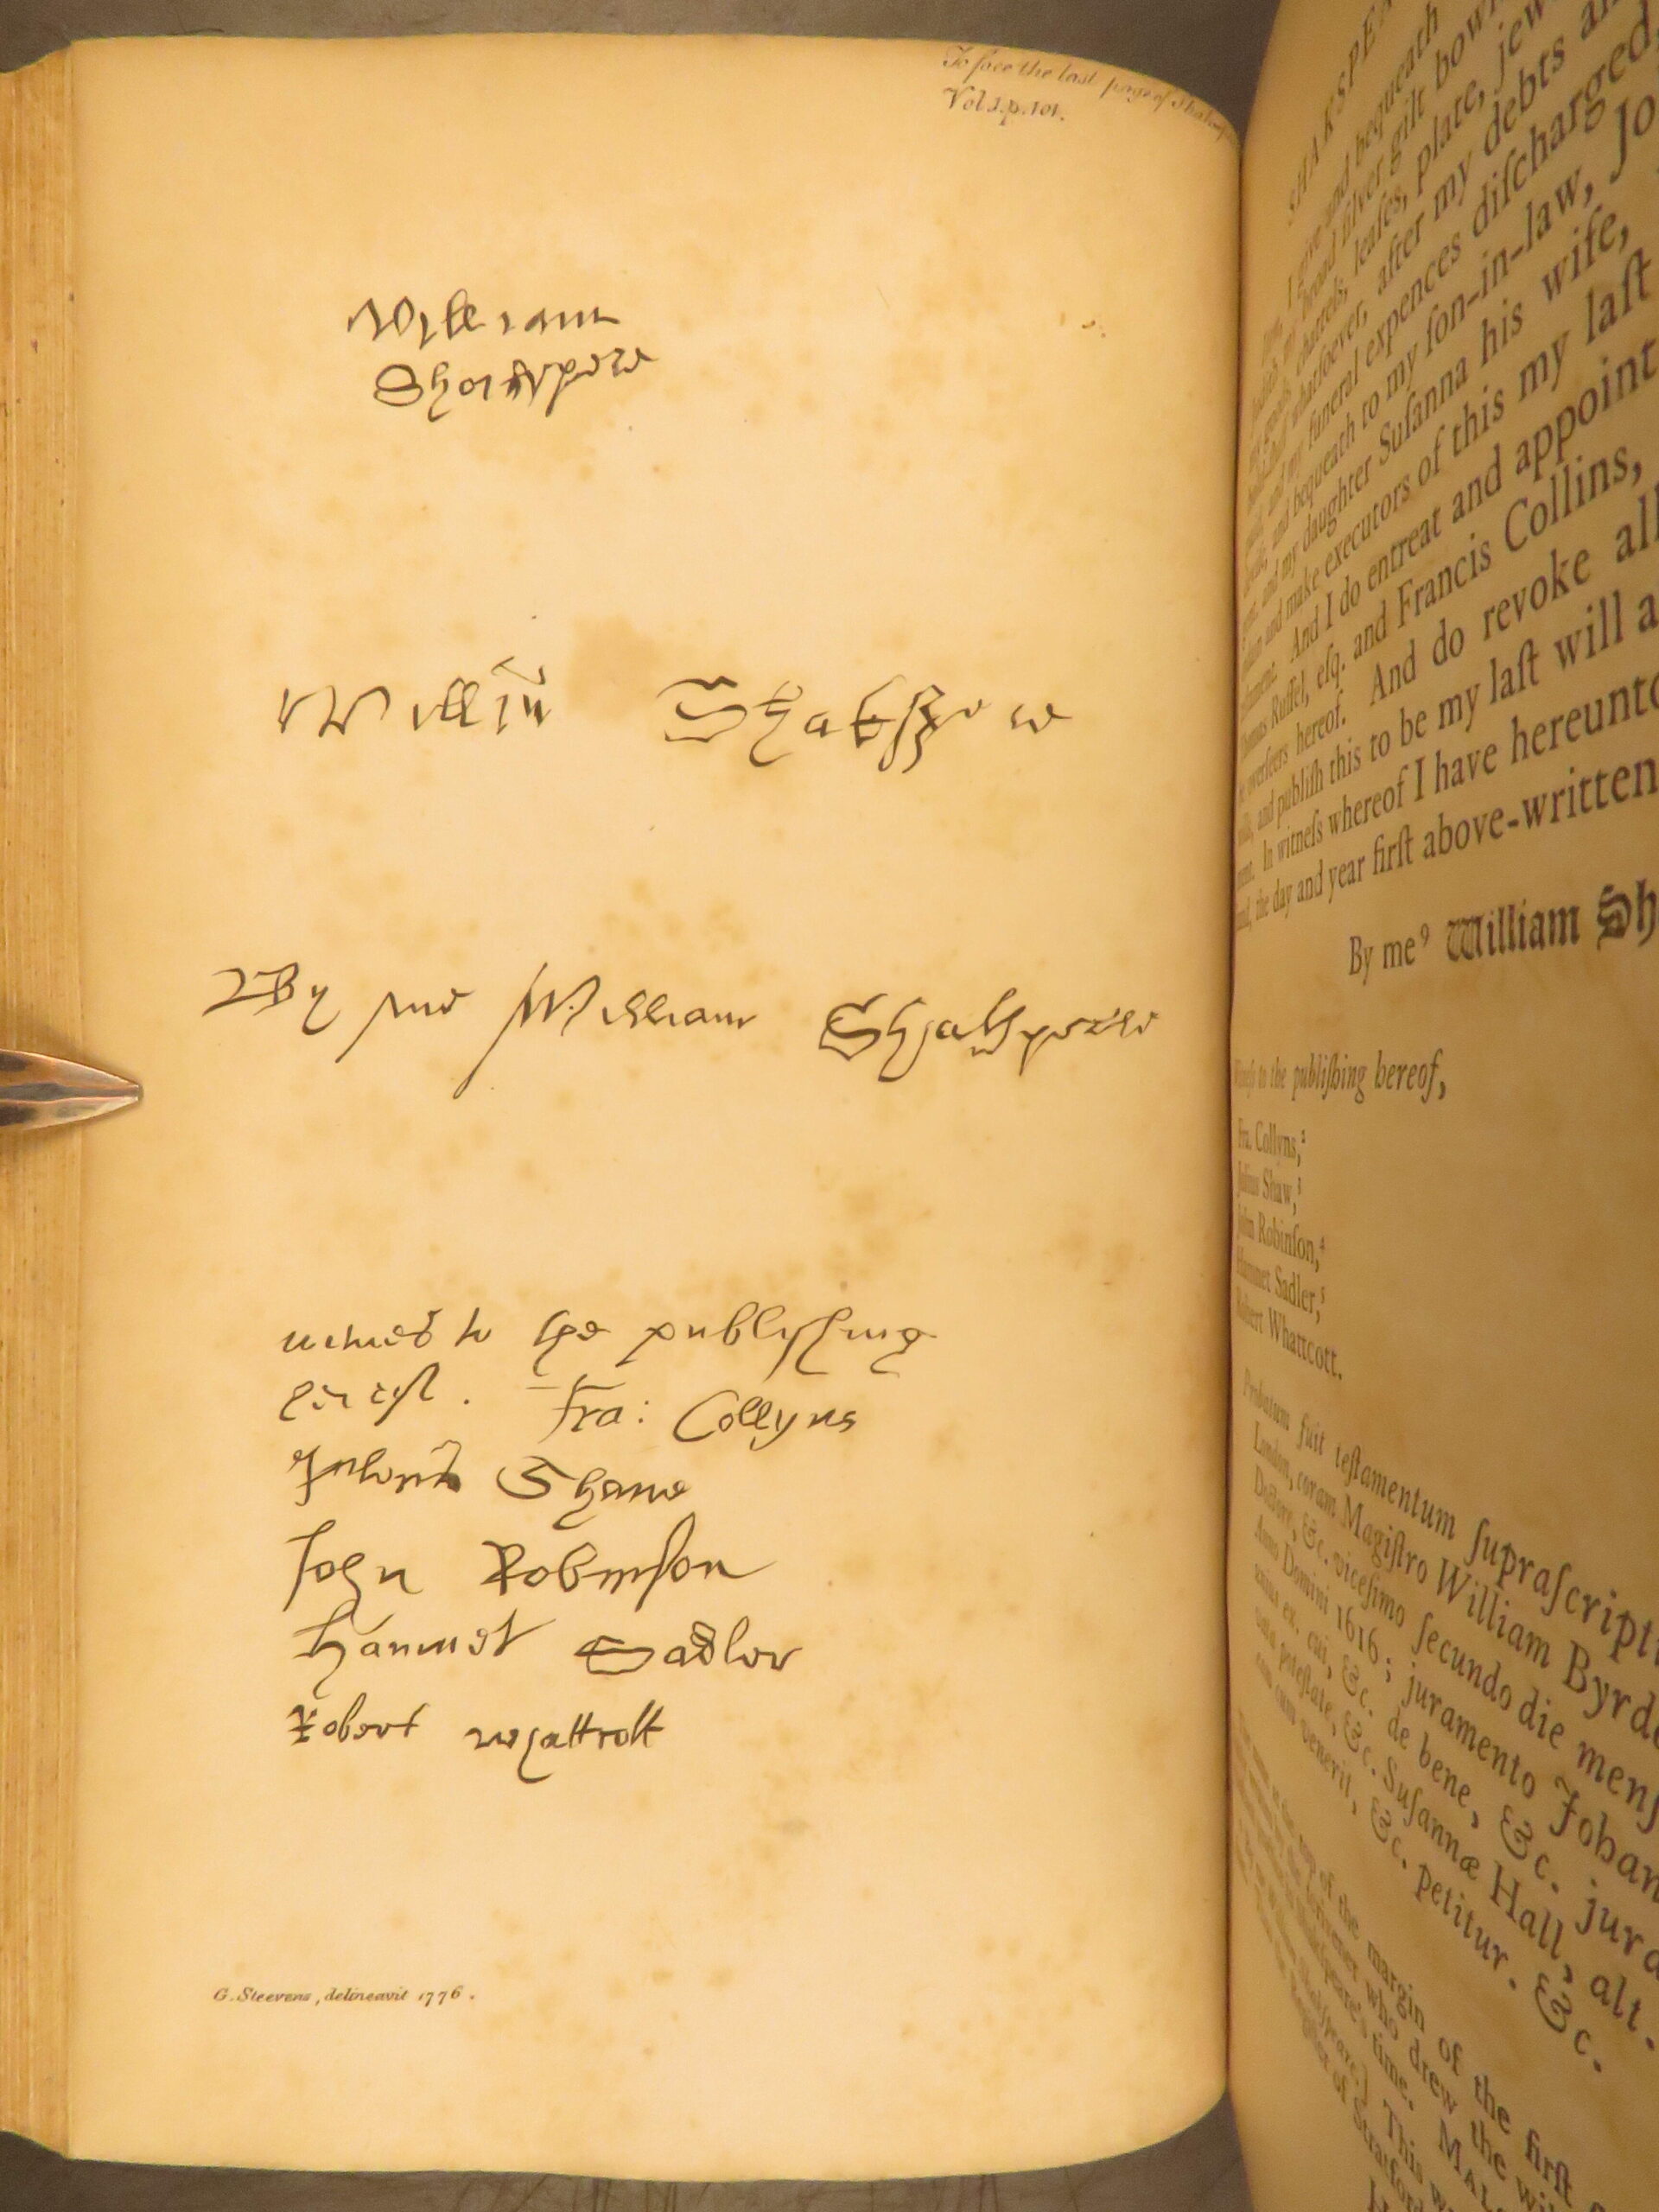 To face the last page of
Vol.1.p.101.
William
Shakspere
Willm Shakspere
By me William Shakspeare
witnes to the publyshing
hereof. Fra: Collyns
Julius Shawe
John Robinson
Hamnet Sadler
Robert Whattcott
G. Steevens, delineavit 1776.
bequeath
plate,
after my debts
expences diſcharged,
bequeath to my ſon-in-law, Jo
my daughter Suſanna his wife,
and make executors of this my laſt
And I do entreat and appoint
Ruſſel, eſq. and Francis Collins,
overſeers hereof. And do revoke all
and publiſh this to be my laſt will a
In witneſs whereof I have hereunto
the day and year firſt above-written
By me⁹ William Sh
to the publiſhing hereof,
Fra. Collyns,²
Julius Shaw,³
John Robinſon,⁴
Hamnet Sadler,⁵
Robert Whattcott.
Probatum fuit teſtamentum ſupraſcript
London, coram Magiſtro William Byrde
Doctore, &c. viceſimo ſecundo die menſ
Anno Domini 1616; juramento Johan
cui, &c. de bene, &c. jura
poteſtate, &c. Suſannæ Hall, alt.
cum venerit, &c. petitur. &c.
margin of the firſt
who drew the wi
time. MAL
This w
of Stratford